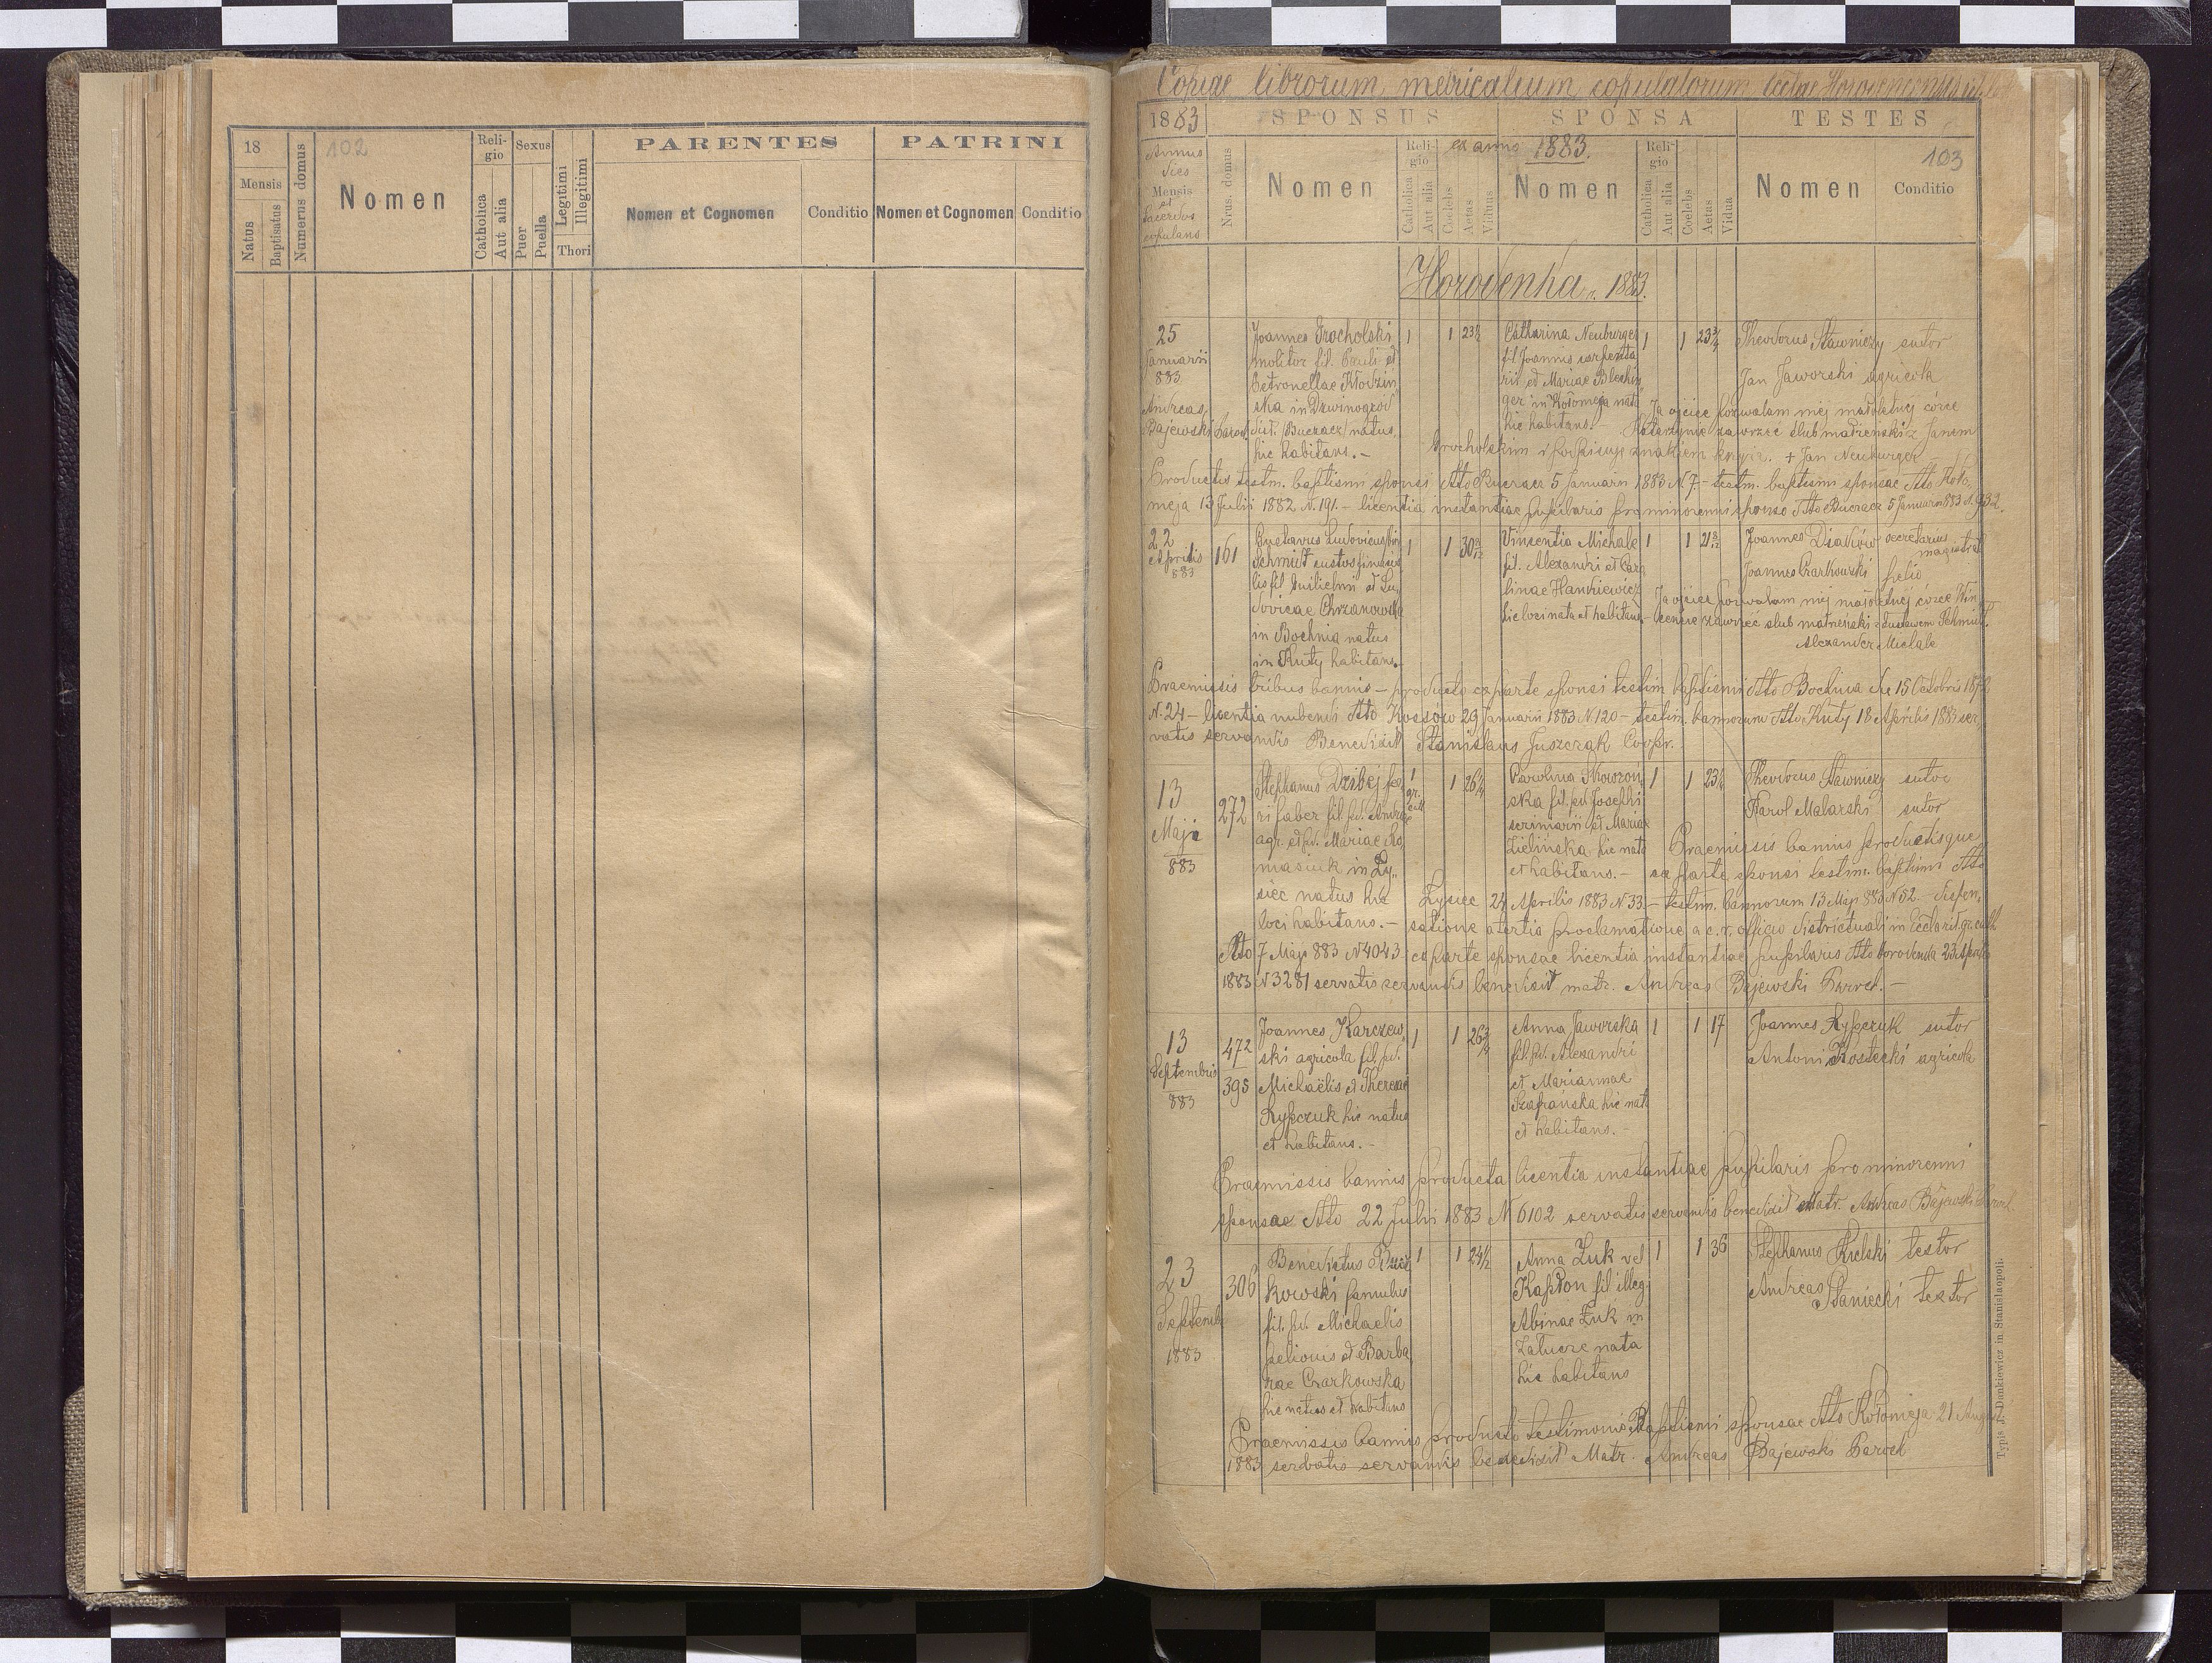 18
102
Mensis
Natus
Baptisatus
Numerus domus
Nomen
Religio
Catholica
Aut alia
Sexus
Puer
Puella
Legitimi
Illegitimi
Thori
PARENTES
Nomen et Cognomen
Conditio
PATRINI
Nomen et Cognomen
Conditio
Copiae librorum metricalium copulatorum
1883
SPONSUS
SPONSA
TESTES
ex anno 1883.
103
Annus
Dies
Mensis
et
Sacerdos
copulans
Nrus. domus
Nomen
Religio
Catholica
Aut alia
Coelebs
Aetas
Viduus
Nomen
Religio
Catholica
Aut alia
Coelebs
Aetas
Vidua
Nomen
Conditio
Horodenka 1883.
25
Januarii
883
Andreas
Bajewski
Joannes Grocholski
molitor fil. Pauli et
Petronellae
ska in Dzwinogród
dist. (Buczacz) natus
hic habitans.-
1
1
Catharina Neuburger
fil. Joannis carpenta
rii et Mariae
ger in Kołomyja nat
hic habitans.-
1
1
23 3/4
Theodorus Sławniczy sutor
Jan Jaworski agricola
Ja ojciec pozwalam mej małoletnej córce
Katarzynie zawrzéć ślub małżeński z Janem
Grocholskim i podpisuję znakiem krzyża. + Jan Neuburger
Productis testm. baptismi sponsi dtto Buczacz 5 Januarii 1883 N. 7.- testm. baptismi sponsae dtto Koło
meja 13 Julii 1882 N. 191.- licentia instantiae pupilaris pro minorenni sponso dtto Buczacz 5 Januarii 883 N. 932.
22
Aprilis
883
161
Gustavus Ludovicus
Schmidt custos
fil. Guilielmi et Lu
dovicae Chrzanowska
in Bochnia natus
in Kuty habitans.-
1
1
30 9/12
Vincentia Michale
fil. Alexandri et Caro
linae Hankiewicz
hic loci nata et habitans.-
1
1
Joannes secretarius
magistrat
Joannes Czarkowski pelio
Ja ojciec pozwalam mej małoletnej córce Win
cencie zawrzéć ślub małżeński z Gustawem Schmidt.
Alexander Michale
Praemissis tribus bannis - producto ex parte sponsi testim baptismi dtto Bochnia de 15 Octobris 187
N. 24 - licentia nubendi dtto Kossów 29 Januarii 1883 N 120 - testim. bannorum dtto Kuty 18 Aprilis 1883 ser
vatis servandis Benedixit Stanislaus Juszczak Coopr.
13
Maja
883
272
Stephanus Dzibej fer
ri faber fil. pd. Andreae
agr. et pd. Mariae Ro
masiuk in Ły
siec natus hic
loci habitans.-
1
gr.
cat
1
26 1/4
Carolina Skowroń
ska fil. pd. Josephi
scriniarii et Mariae
Zielińska hic nata
et habitans.-
1
1
Theodorus Sławniczy sutor
Karol Malarski sutor
Praemissis bannis productisque
ex parte sponsi testim. baptismi dtto
Łysiec 24 Aprilis 1883 N 33.- testm. bannorum 13 Maji 883 N 52 - dispen
satione a tertia proclamatione a c. r. officio districtuali in
dtto 7 Maji 883 N 4043 - ex parte sponsae licentia instantiae pupilaris dtto Horodenka 23 Aprilis
1883 N 3281 servatis servandis benedixit matr. Andreas Bajewski Paroch.-
13
Septembris
883
472
395
Joannes Karczew
ski agricola fil. pd.
Michaëlis et Theresae
Rypczuk hic natus
et habitans.-
1
1
26 3/4
Anna Jaworska
fil. pd. Alexandri
et Mariannae
Szafranska hic nat
et habitans.-
1
1
17
Joannes Rypczuk sutor
Antoni Kostecki agricola
Praemissis bannis producta licentia instantiae pupilaris pro minorenni
sponsae dtto 22 Julii 1883 N 6102 servatis servandis benedixit Matr. Andreas Bajewski Paroch.
23
Septemb
1883
306
Benedictus
kowski famulus
fil. pd. Michaelis
pelionis et Barba
rae Czarkowska
hic natus et habitans
1
1
24 1/2
Anna Łuk vel
Kapłon fil illeg
Abinae Łuk in
Załucze nata
hic habitans
1
1
36
Stephanus Kielski textor
Andreas Staniecki textor
Praemissis bannis producto testimonio Baptismi sponsae dtto Kołomyja 21 August
1883 servatis servandis benedixit Matr. Andreas Bajewski Paroch
Typis J. Dankiewicz in Stanislaopoli.